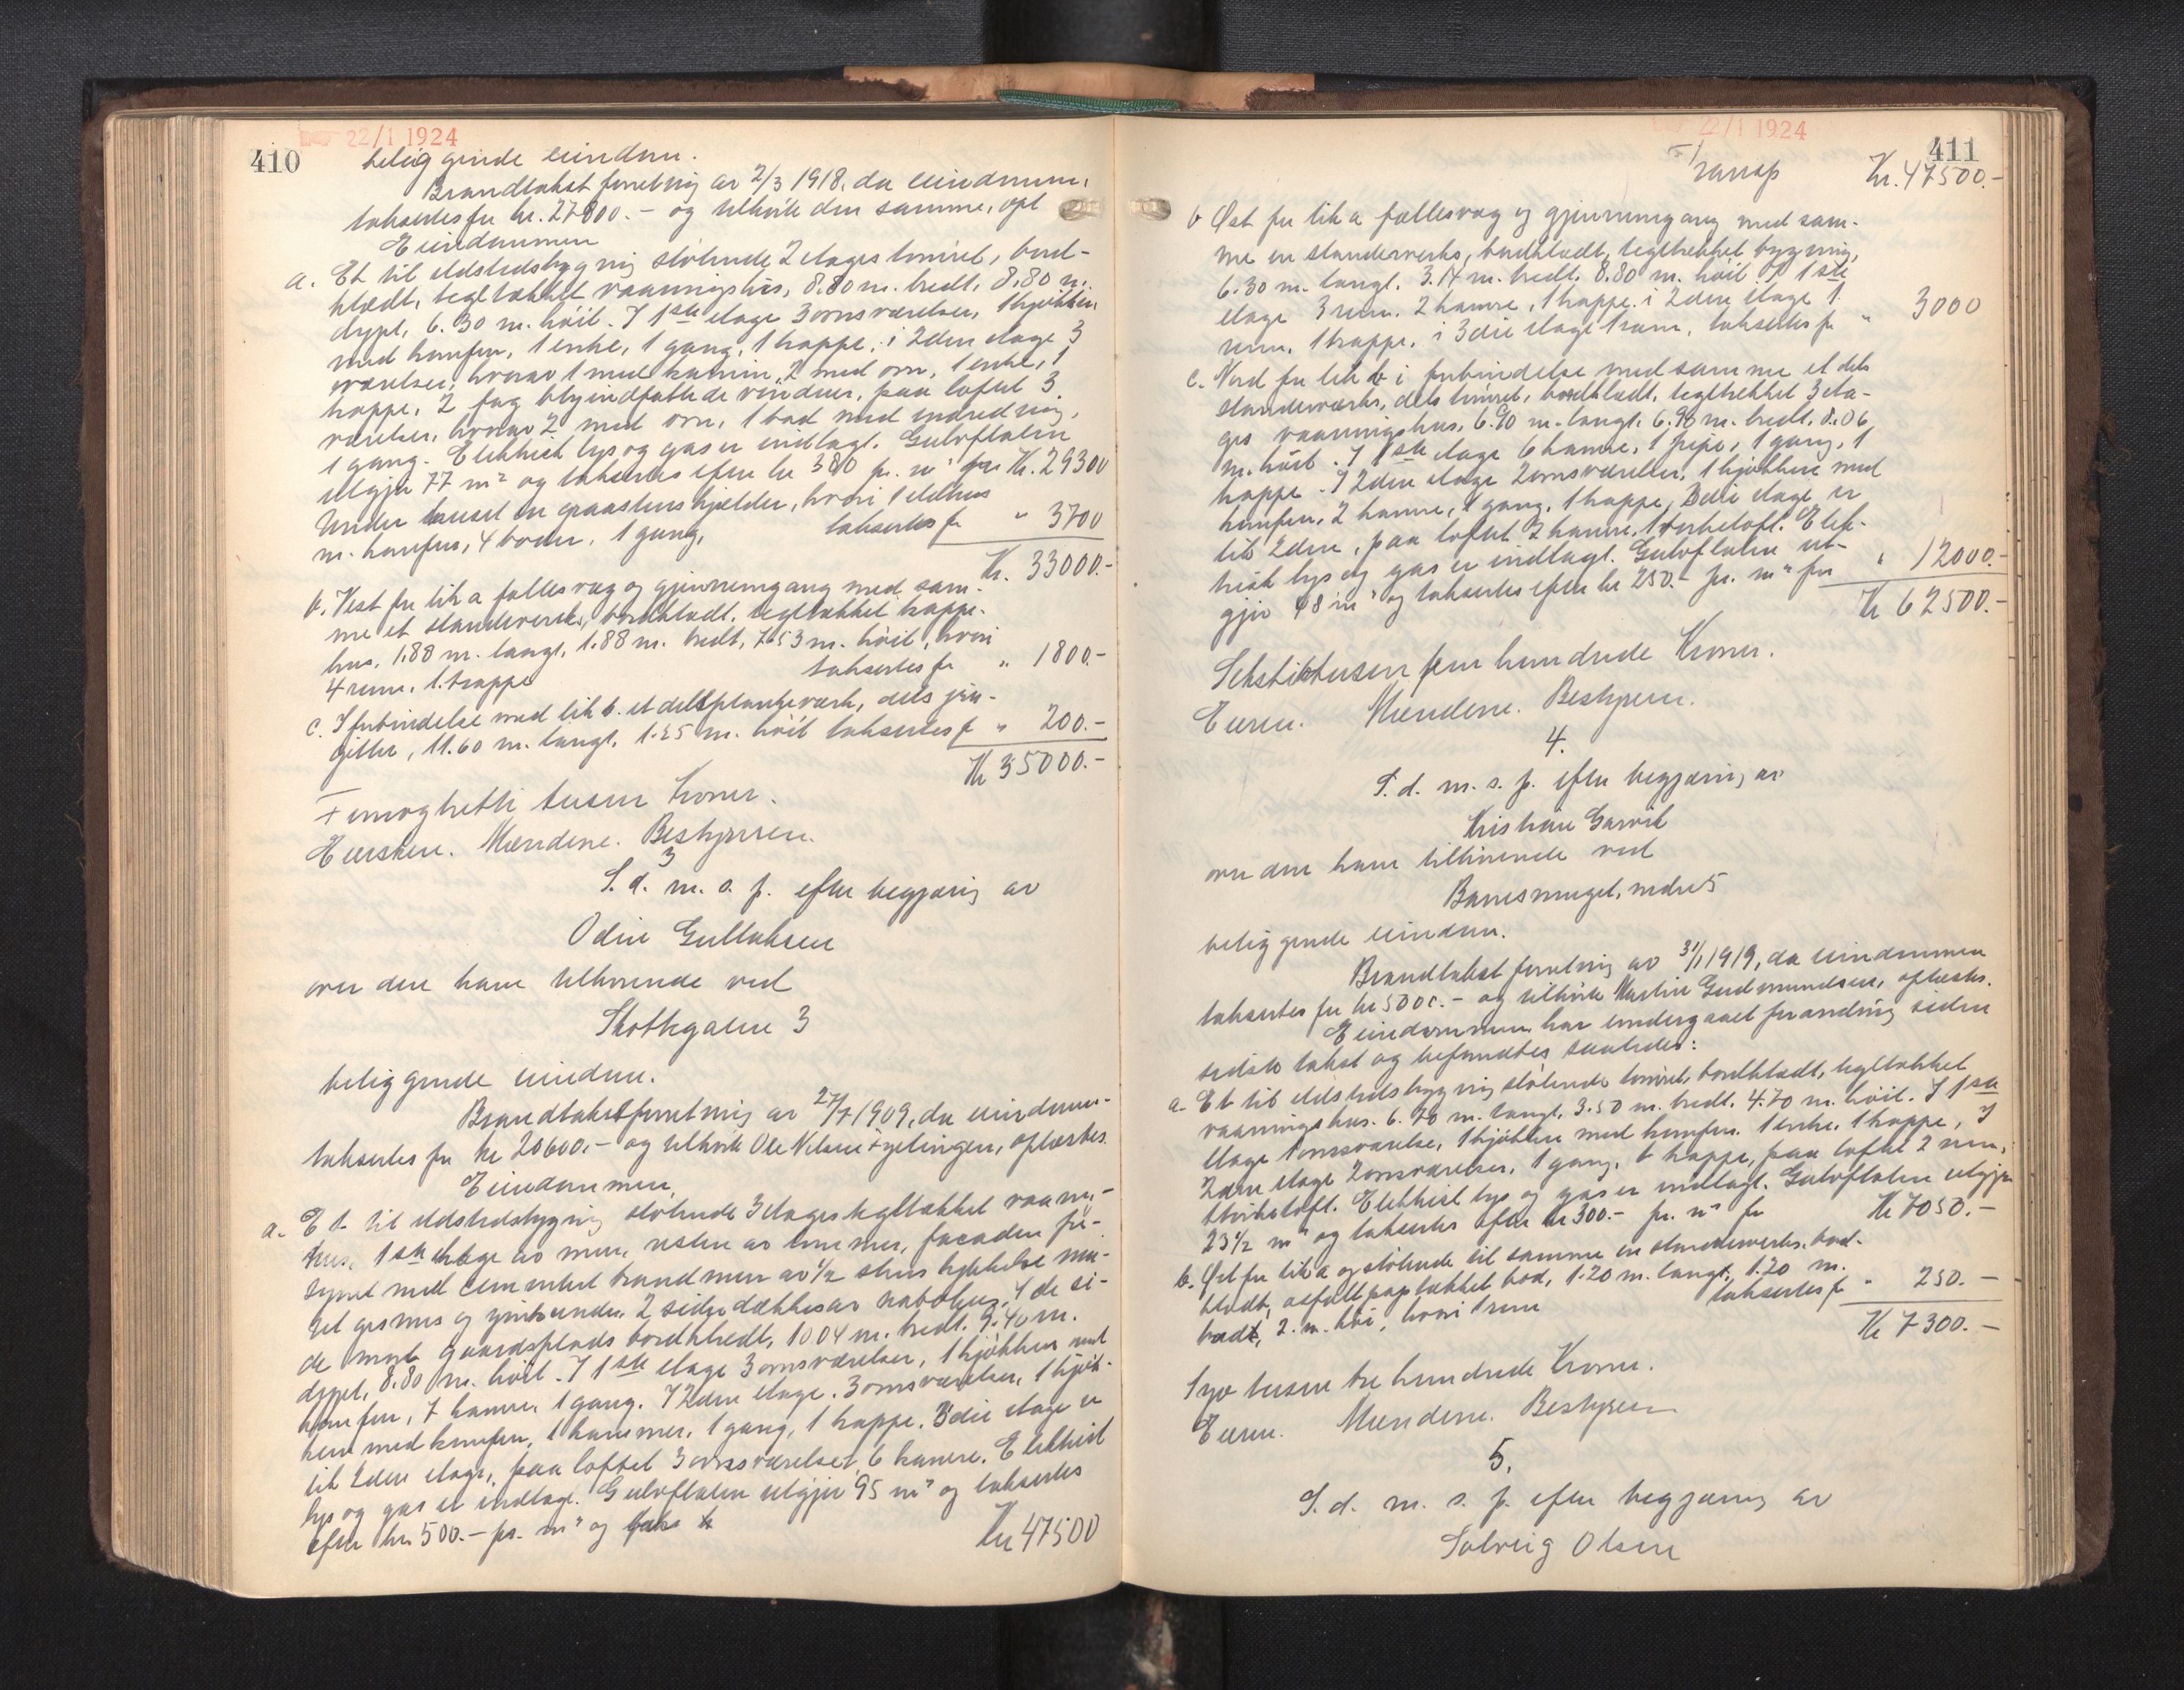 22/1 1924
410
beliggende eiendom.
Brandtakst forretning av 2/3 1918, da eiendommen
taksertes for kr. 27800.- og tilhørte den samme, opl
Eiendommen
a. Et til ildstedsbygning støtende 2 etages tømret, bord-
klædt, tegltækket vaaningshus, 8.80 m. bredt, 8.80 m.
dypt, 6.30 m. høit. I 1ste etage 3 ovnsværelser, 1 kjøkken
med komfur, 1 entre, 1 gang, 1 trappe, i 2den etage 3
værelser, hvorav 1 med kamin, 2 med ovn, 1 entre, 1
trappe, 2 fag blyindfattede vinduer, paa loftet 3
værelser, hvorav 2 med ovn, 1 bad med indredning,
1 gang. Elektrisk lys og gas er indlagt. Gulvflaten
utgjør 77 m² og takseres efter kr 380 pr. m² for Kr. 29300
Under huset en graastenskjelder, hvori 1 ildhus
m. komfur, 4 boder, 1 gang, taksertes for " 3700
Kr. 33000.-
b. Vest for lit a fællesvæg og gjennemgang med sam-
me et standerverks, bordklædt, tegltækket trappe-
hus, 1.88 m. langt, 1.88 m. bredt, 7.53 m. høit, hvori
4 rum, 1 trappe taksertes for " 1800.-
c. I forbindelse med lit b. et dels plankeverk, dels jern-
gitter, 11.60 m. langt, 1.25 m. høit taksertes for " 200.-
Kr 35000.-
Femogtretti tusen Kroner.
Eiersken. Mændene. Bestyreren.
3
S. d. m. s. f. efter begjæring av
Odin Gullaksen
over den ham tilhørende ved
Skottegaten 3
beliggende eiendom.
Brandtakstforretning av 27/7 1909, da eiendom-
taksertes for kr 20600.- og tilhørte Ole Nilsen Fyllingen, oplæstes.
Eiendommen.
a. Et til ildstedsbygning støtende 3 etages tegltækket vaanings-
hus, 1ste etage av mur, resten av tømmer, facaden for-
synet med cementert brandmur av 1/2 stens tykkelse mu-
de mot gaardsplads bordklædt, 10.04 m. bredt, 9.40 m.
dypt, 8.80 m. høit. I 1ste etage 3 ovnsværelser, 1 kjøkken med
komfur, 7 kamre, 1 gang. I 2den etage 3 ovnsværelser, 1 kjøk-
ken med komfur, 1 kammer, 1 gang, 1 trappe. 3die etage er
lik 2den etage, paa loftet 3 ovnsværelser, 6 kamre. Elektrisk
lys og gas er indlagt. Gulvflaten utgjør 95 m² og taksertes
efter kr. 500.- pr. m² og Kr 47500
22/1 1924
411
Transp Kr. 47500.-
b Øst for lit a fællesvæg og gjennemgang med sam-
me en standerverks, bordklædt, tegltekket bygning,
6.30 m. langt, 3.14 m. bredt, 8.80 m. høit. I 1ste
etage 3 rum, 2 kamre, 1 trappe, i 2den etage 1
rum, 1 trappe, i 3die etage 1 rum, taksertes for " 3000
c. Nord for lit b i forbindelse med samme et dels
standerværks, dels tømret, bordklædt, tegltekket 3 eta-
ges vaaningshus, 6.90 m. langt, 6.98 m. bredt, 8.06
m. høit. I 1ste etage 6 kamre, 1 pipe, 1 gang, 1
trappe. I 2den etage 2 ovnsværelser, 1 kjøkken med
komfur, 2 kamre, 1 gang, 1 trappe, 3die etage er
lik 2den, paa loftet 2 kamre, 1 tørkeloft. Elek-
trisk lys og gas er indlagt. Gulvflaten ut-
gjør 48 m² og taksertes efter kr 250.- pr. m² for " 12000.-
Kr 62500.-
Sekstitotusen fem hundrede Kroner.
Eieren. Mændene. Bestyreren.
4.
S. d. m. s. f. efter begjæring av
Kristian Garvik
over den ham tilhørende ved
Banesmuget, nedre 5
beliggende eiendom.
Brandtakst forretning av 31/1 1919, da eiendommen
taksertes for kr 5000.- og tilhørte Martin Gudmundsen, oplæstes.
Eiendommen har undergaaet forandring siden
sidste takst og befandtes saaledes:
a. Et til ildstedsbygning støtende tømret, bordklædt, tegltækket
vaaningshus. 6.70 m. langt, 3.50 m. bredt, 4.70 m. høit. I 1ste
etage 1 ovnsværelse, 1 kjøkken med komfur, 1 entre, 1 trappe, I
2den etage 2 ovnsværelser, 1 gang, 1 trappe, paa loftet 2 rum,
Elektrisk lys og gas er indlagt. Gulvflaten utgjør
23 1/2 m² og taksertes efter kr 300.- pr. m² for Kr 7050.-
b. Øst for lit a og støtende til samme en standerverks, bord-
klædt, asfaltpaptækket bod, 1.20 m. langt, 1.20 m.
bredt, 2. m. høi, hvori 1 rum taksertes for " 250.-
Kr 7300.-
Syv tusen tre hundrede Kroner.
Eieren. Mændene. Bestyreren
5.
S. d. m. s. f. efter begjæring av
Solveig Olsen